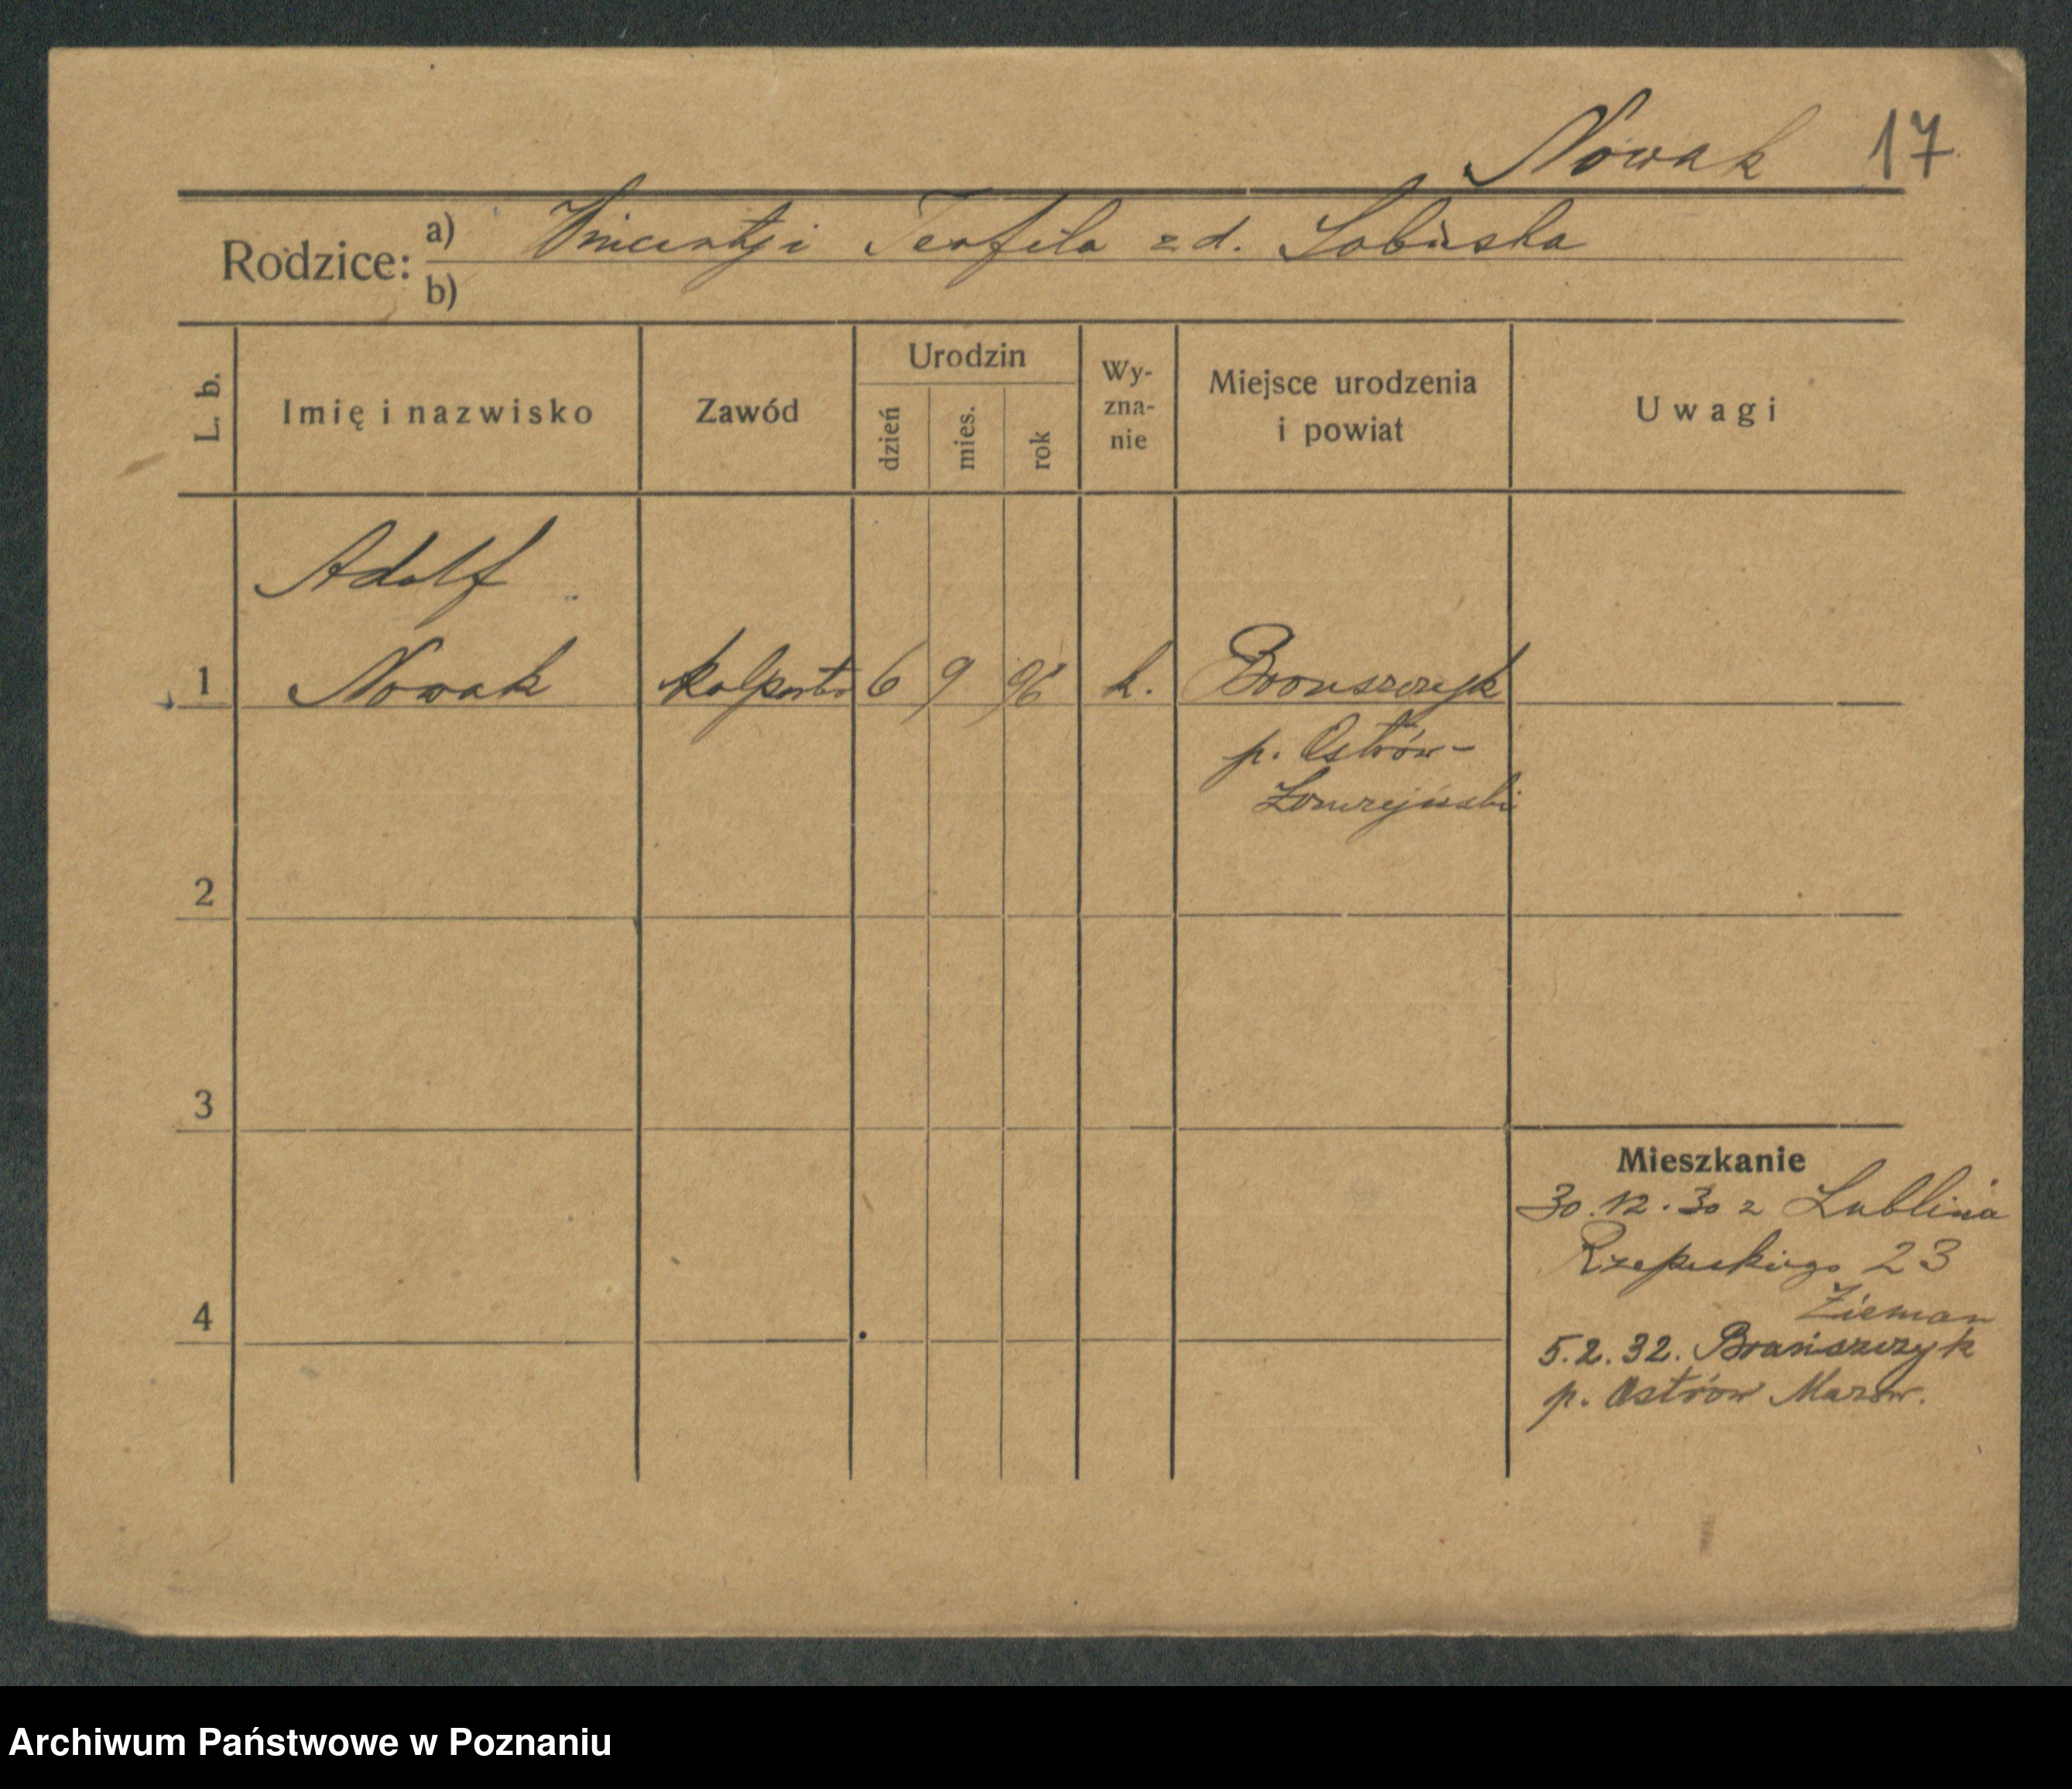 Nowak 17
Rodzice: a) Wincenty i Teofila z d. Sobiska
b)
L. b. Imię i nazwisko Zawód Urodzin dzień mies. rok Wy-zna-nie Miejsce urodzenia i powiat Uwagi
Adolf
1 Nowak kolporter 6 9 96 k. Bronszczyk
p. Ostrów-
2
3
Mieszkanie
30.12.30 z Lublina
Rzepeckiego 23
Zieman
4
5.2.32. Brańszczyk
p. Ostrów Mazow.
Archiwum Państwowe w Poznaniu